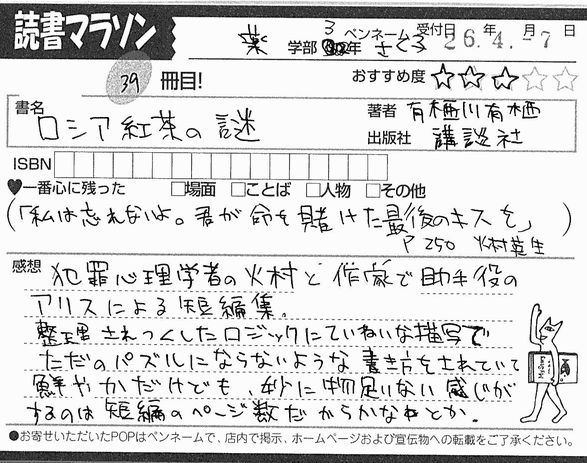 読書マラソン
薬 学部 3年 ペンネーム さくろ 受付日 26.年4.月-7日
39 冊目! おすすめ度 ☆☆☆☆☆
書名 ロシア紅茶の謎
著者 有栖川有栖
出版社 講談社
ISBN
♥一番心に残った □場面 □ことば □人物 □その他
(「私は忘れないよ。君が命を賭けた最後のキスを」)
P250 火村英生
感想 犯罪心理学者の火村と作家で助手役の
アリスによる短編集。
整理されつくしたロジックにていねいな描写で
ただのパズルにならないような書き方をされていて
鮮やかだけども、妙に物足りない感じが
するのは短編のページ数だからかなぁとか。
●お寄せいただいたPOPはペンネームで、店内で掲示、ホームページおよび宣伝物への転載をご了承ください。